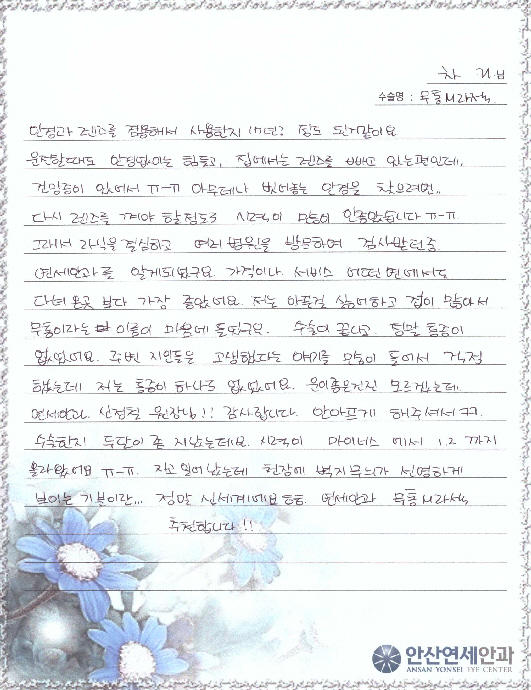 차 기님
수술명 : 무통M라섹
안경과 렌즈를 착용해서 사용한지 10년? 정도 된거같아요
운전할때도 안경없이는 힘들고, 집에서는 렌즈를 빼고 있는편인데,
건망증이 있어서 ㅠ-ㅠ 아무데나 벗어놓은 안경을 찾으려면..
다시 렌즈를 껴야 할정도로 시력이 많이 안좋았습니다 ㅠ-ㅠ.
그래서 라식을 결심하고 여러 병원을 방문하여 검사받던중
연세안과를 알게되었구요. 가격이나 서비스 어떤면에서도
다녀 온곳 보다 가장 좋았어요. 저는 아픈걸 싫어하고 겁이 많아서
무통이라는 이름이 마음에 들더구요. 수술이 끝나고 정말 통증이
없었어요. 주변 지인들은 고생했다는 얘기를 많이 들어서 걱정
했는데 저는 통증이 하나도 없었어요. 운이좋은건진 모르겠는데
연세안과 원장님!! 감사합니다. 안아프게 해주셔서 ㅋㅋ.
수술한지 두달이 좀 지났는데요. 시력이 마이너스 에서 1.2 까지
올라왔어요 ㅠ-ㅠ. 자고 일어났는데 천장에 벽지무늬가 선명하게
보이는 기분이란... 정말 신세계에요 ㅎㅎ. 연세안과 무통M라섹
추천합니다!!
안산연세안과
ANSAN YONSEI EYE CENTER